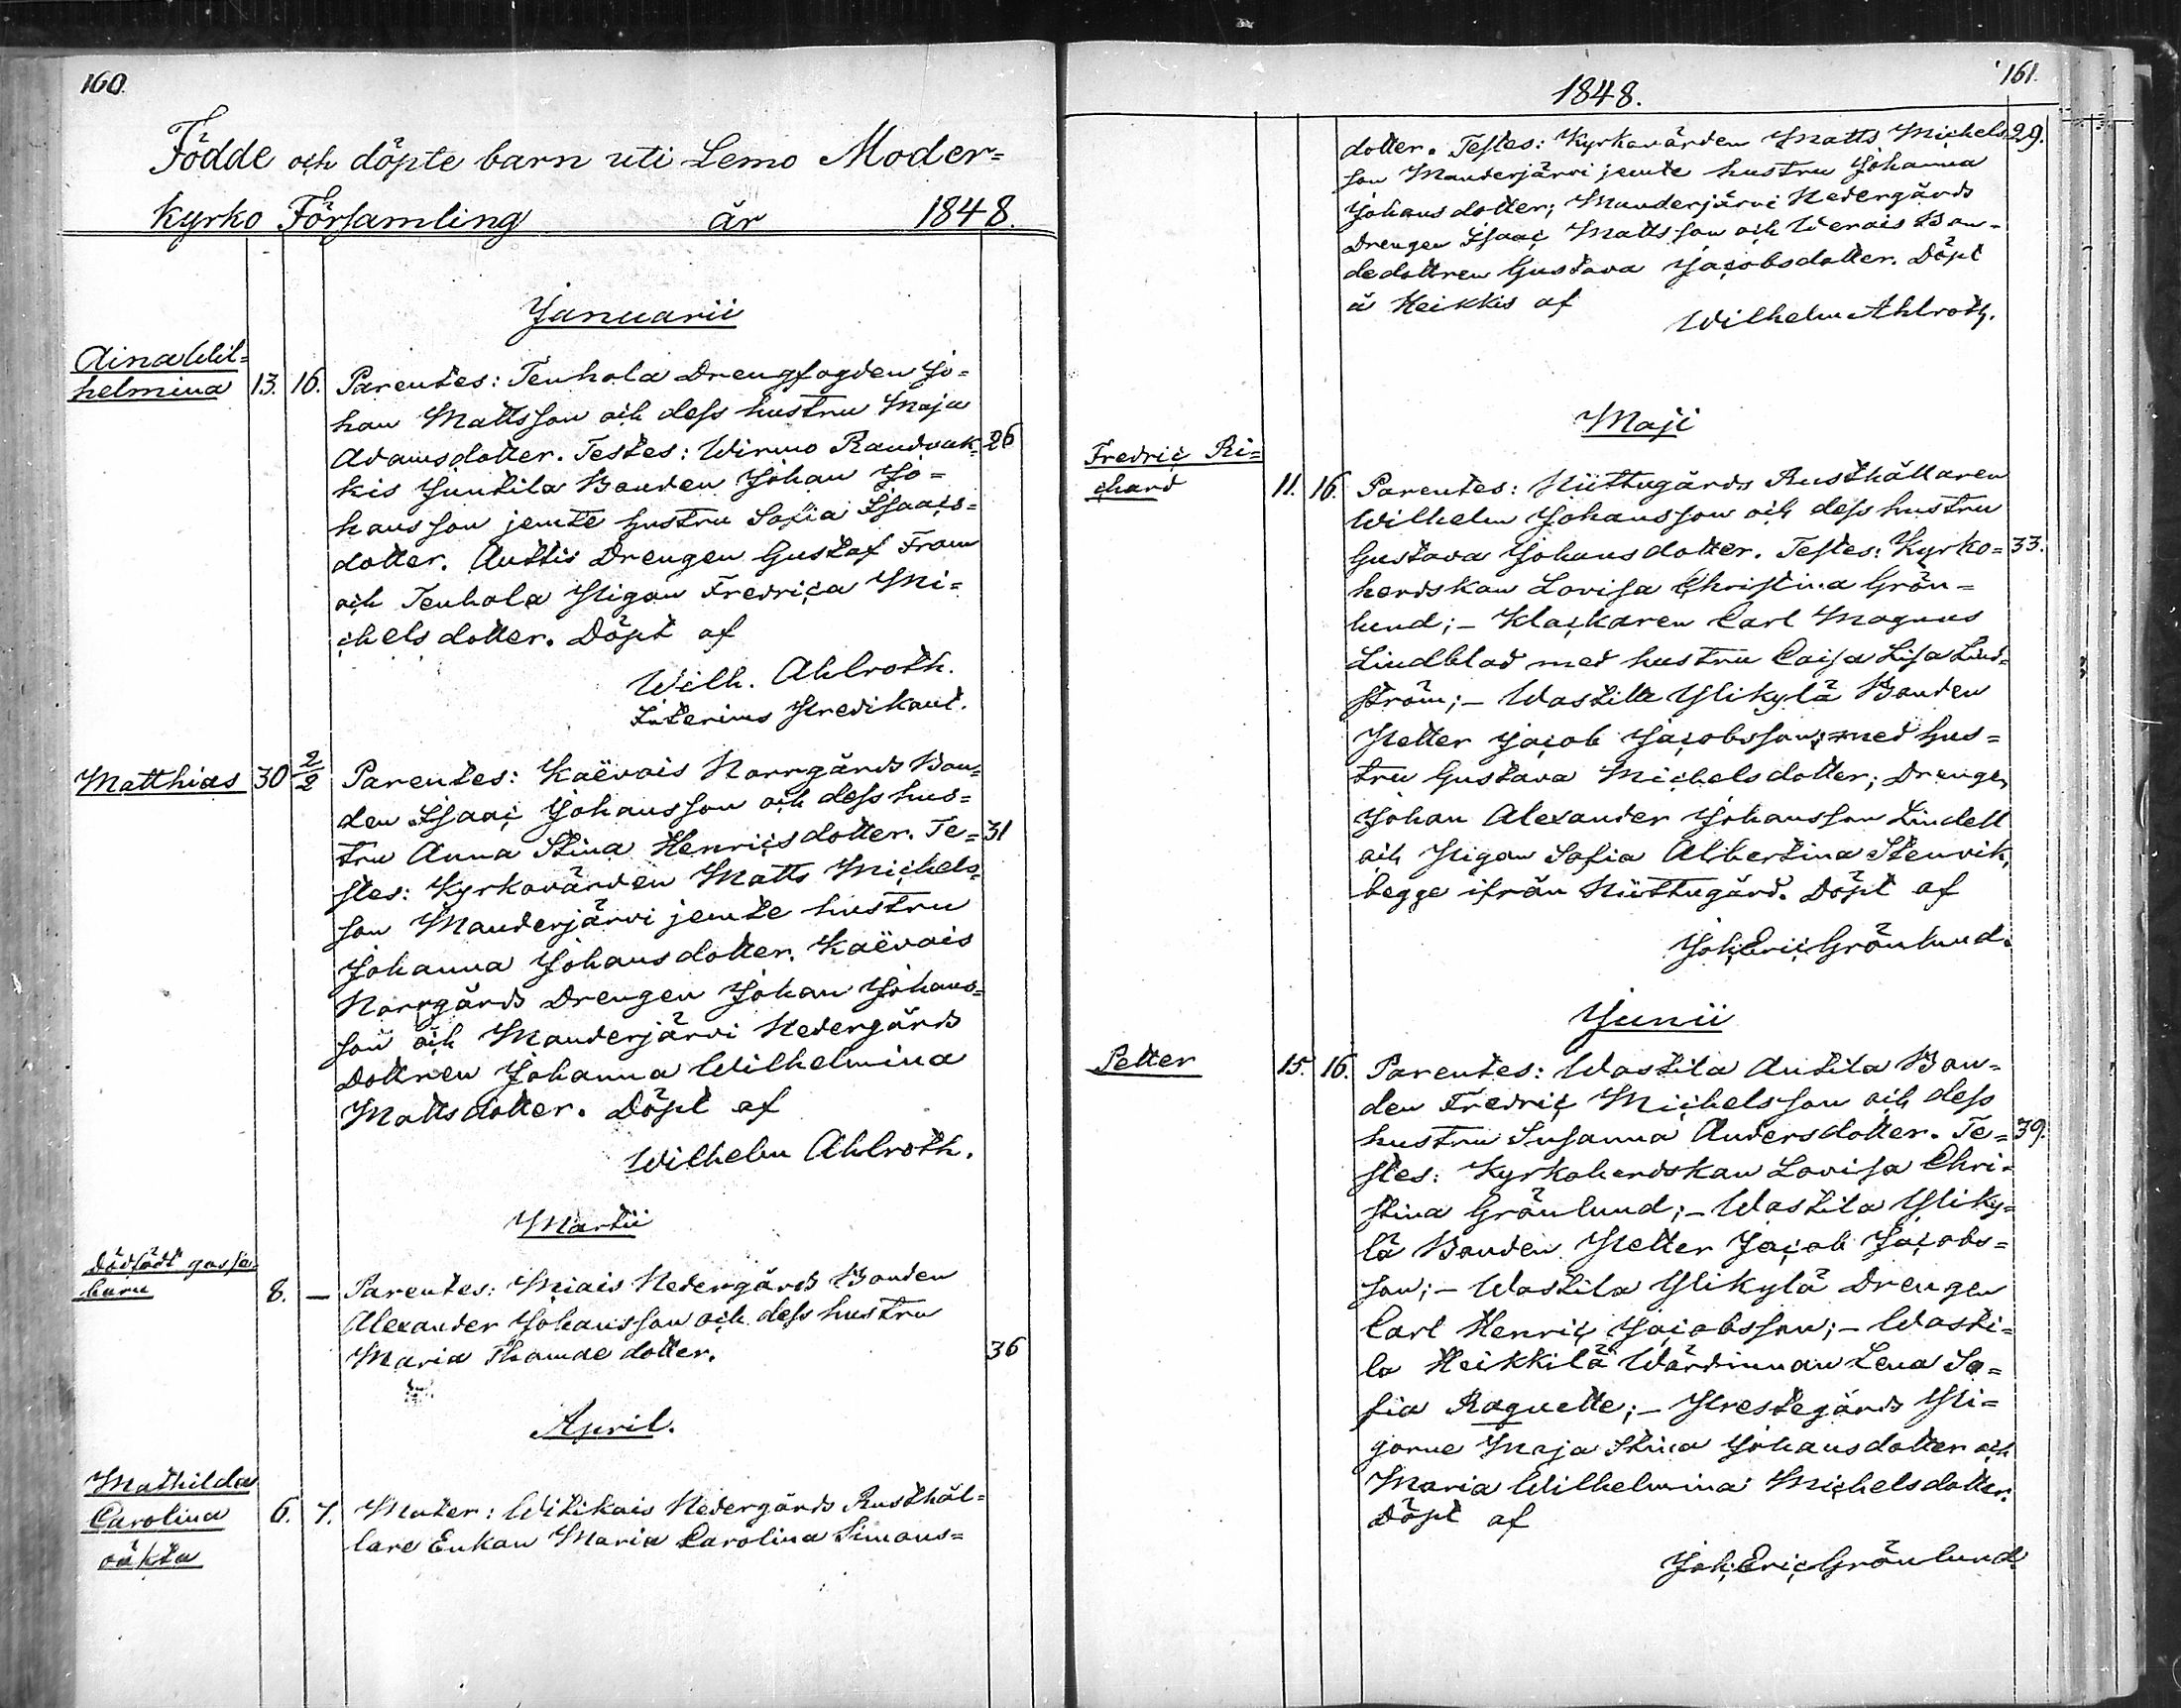 160.
Födde och döpte barn uti Lemo Moder=
Kyrko Församling år 1848.
Januarii
Aina Wil=
helmina 13. 16. Parentes: Tenhola Drengfogden Jo=
han Mattsson och dess hustru Maja
Adamsdotter. Testes: Wirmo Raudvak= 26
kis Juntila Bonden Johan Jo=
hansson jemte hustru Sofia Isaacs=
dotter. Anttis Drengen Gustaf Fram
och Tenhola Pigan Fredrica Mi=
chelsdotter. Döpt af
Wilh. Ahlroth.
Interims Predikant.
Matthias 30 2/2 Parentes: Kaëvois Norrgårds Bon=
den Isaac Johansson och dess hus=
tru Anna Stina Henricsdotter. Te= 31
stes: Kyrkovärden Matts Michels=
son Manderjärvi jemte hustru
Johanna Johansdotter. Kaëvois
Norrgårds Drengen Johan Johans=
son och Manderjärvi Nedergårds
Dottren Johanna Wilhelmina
Mattsdotter. Döpt af
Wilhelm Ahlroth.
Martii
Dödfödt gosse=
barn 8. — Parentes: Miais Nedergårds Bonden
Alexander Johansson och dess hustru
Maria Thomae dotter. 36
April.
Mathilda
Carolina 6. 7. Mater: Witikais Nedergårds Rusthål=
oäkta lare Enkan Maria Carolina Simons=
1848. 161.
dotter. Testes: Kyrkovärden Matts Michels 29.
son Manderjärvi jemte hustru Johanna
Johansdotter; Manderjärvi Nedergårds
Drengen Isaac Mattsson och Werais Bon=
dedottren Gustava Jacobsdotter. Döpt
å Heikkis af
Wilhelm Ahlroth.
Maji
Fredric Ri=
chard 11. 16. Parentes: Niittugårds Rusthållaren
Wilhelm Johansson och dess hustru
Gustava Johansdotter. Testes: Kyrko= 33.
herdskan Lovisa Christina Grön=
lund; – Klockaren Carl Magnus
Lindblad med hustru Caisa Lisa Lind=
ström; – Wastila Ylikylä Bonden
Petter Jacob Jacobsson med hus=
tru Gustava Michelsdotter; Drengen
Johan Alexander Johansson Lindell
och Pigan Sofia Albertina Stenvik,
begge ifrån Niittugård. Döpt af
Joh. Eric Grönlund.
Junii
Petter 15. 16. Parentes: Wastila Antila Bon=
den Fredric Michelsson och dess
hustru Susanna Andersdotter. Te= 39.
stes: Kyrkoherdskan Lovisa Chri=
stina Grönlund; – Wastila Yliky=
lä Bonden Petter Jacob Jacobs=
son; – Wastila Ylikylä Drengen
Carl Henric Jacobsson; – Wasti=
la Heikkilä Wärdinnan Lena So=
fia Raquette; – Prestegårds Pi=
gorne Maja Stina Johansdotter och
Maria Wilhelmina Michelsdotter.
Döpt af
Joh. Eric Grönlund.